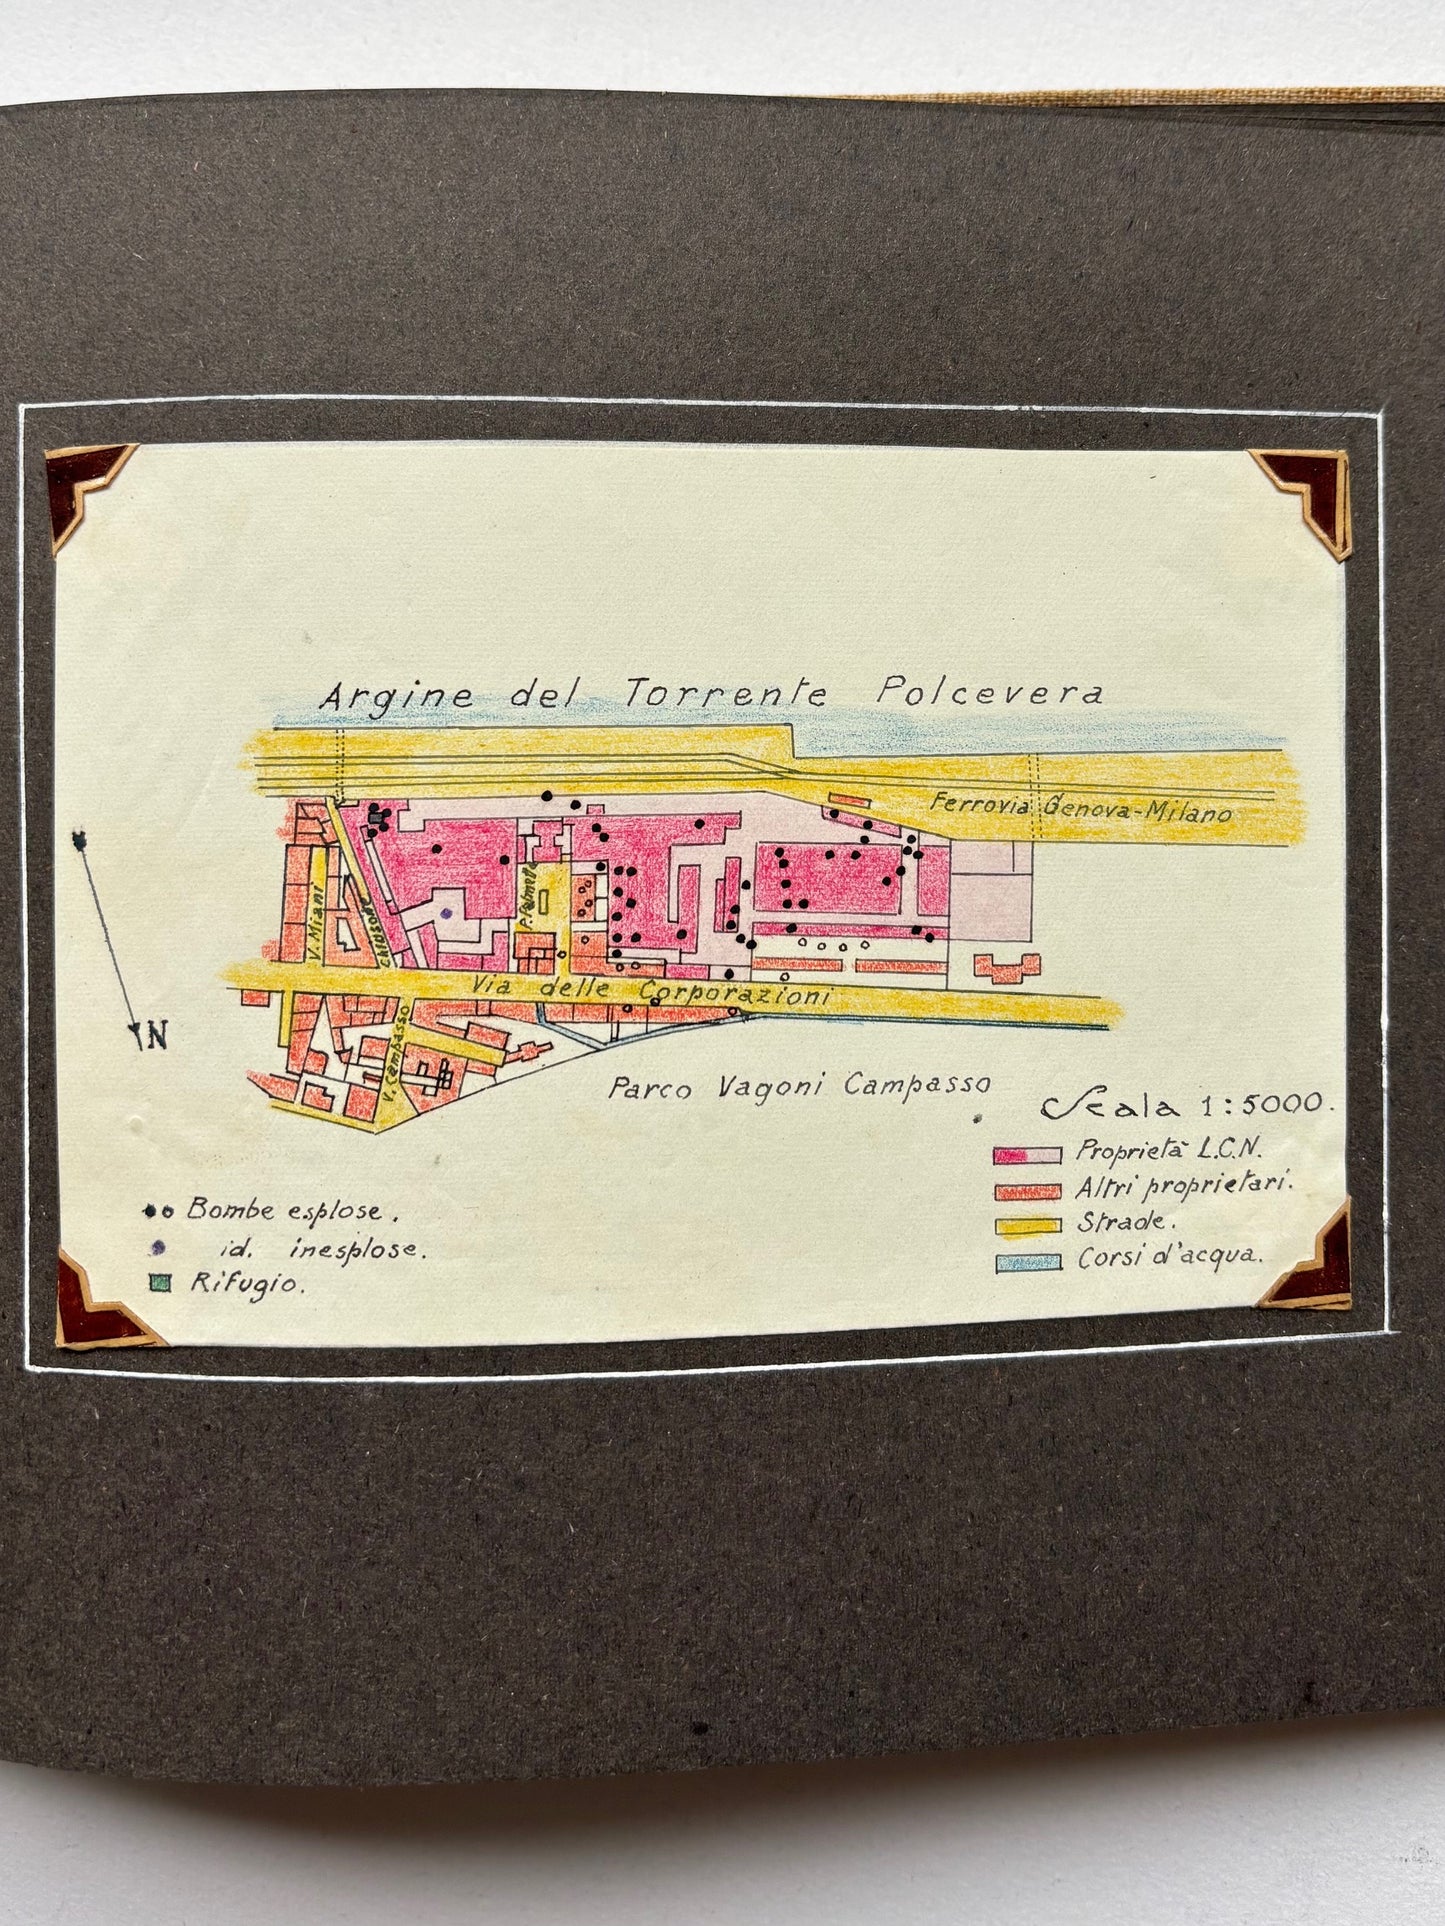 Argine del Torrente Polcevera
Ferrovia Genova-Milano
V. Miani
Chiusone
P. Palmetta
Via delle Corporazioni
V. Campasso
N
Parco Vagoni Campasso
Scala 1:5000.
Proprietà L.C.N.
Altri proprietari.
Strade.
Corsi d'acqua.
Bombe esplose.
id. inesplose.
Rifugio.